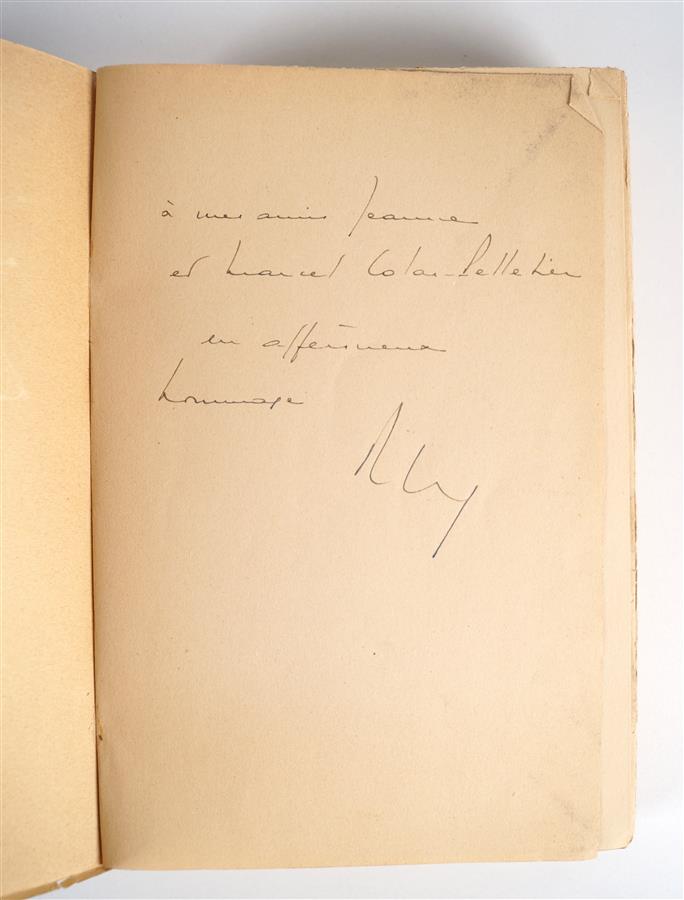 à mes amis Jeanne
et Marcel Colas-Pelletier
en affectueux
hommage